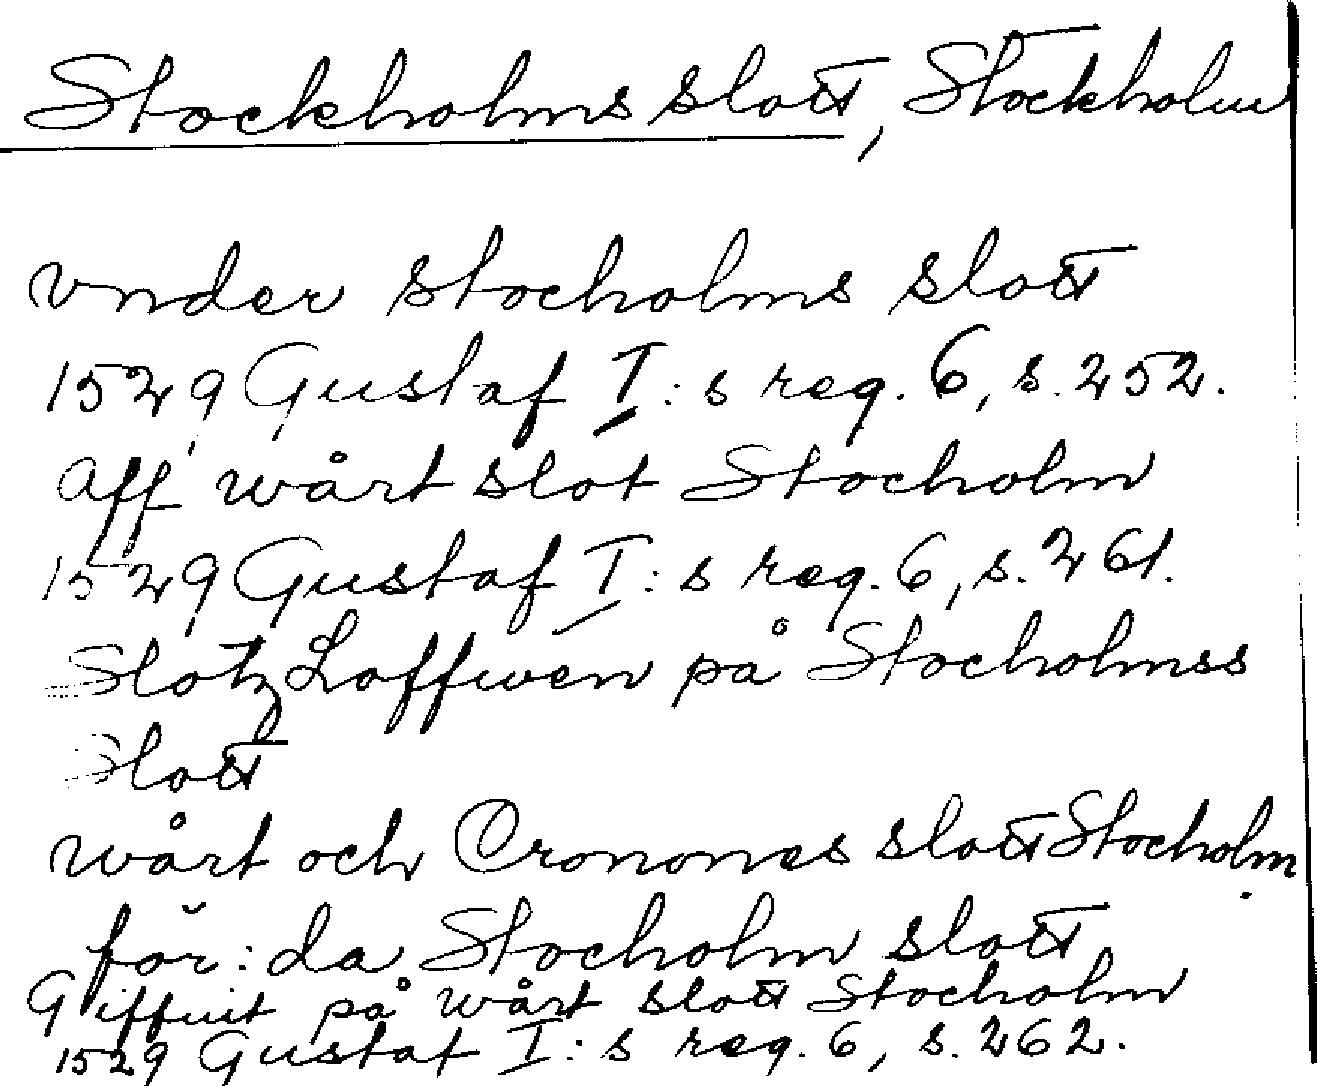 Stockholms slott, Stockholm
vnder stocholms slott
1529 Gustaf I:s reg. 6, s. 252.
Aff wårt slot Stocholm
1529 Gustaf I:s reg. 6, s. 261.
Slotz Loffwen på Stocholmss
Slott
wårt och Cronones slott Stocholm
för: da Stocholm slott
Giffuit på wårt slott Stocholm
1529 Gustaf I:s reg. 6, s. 262.